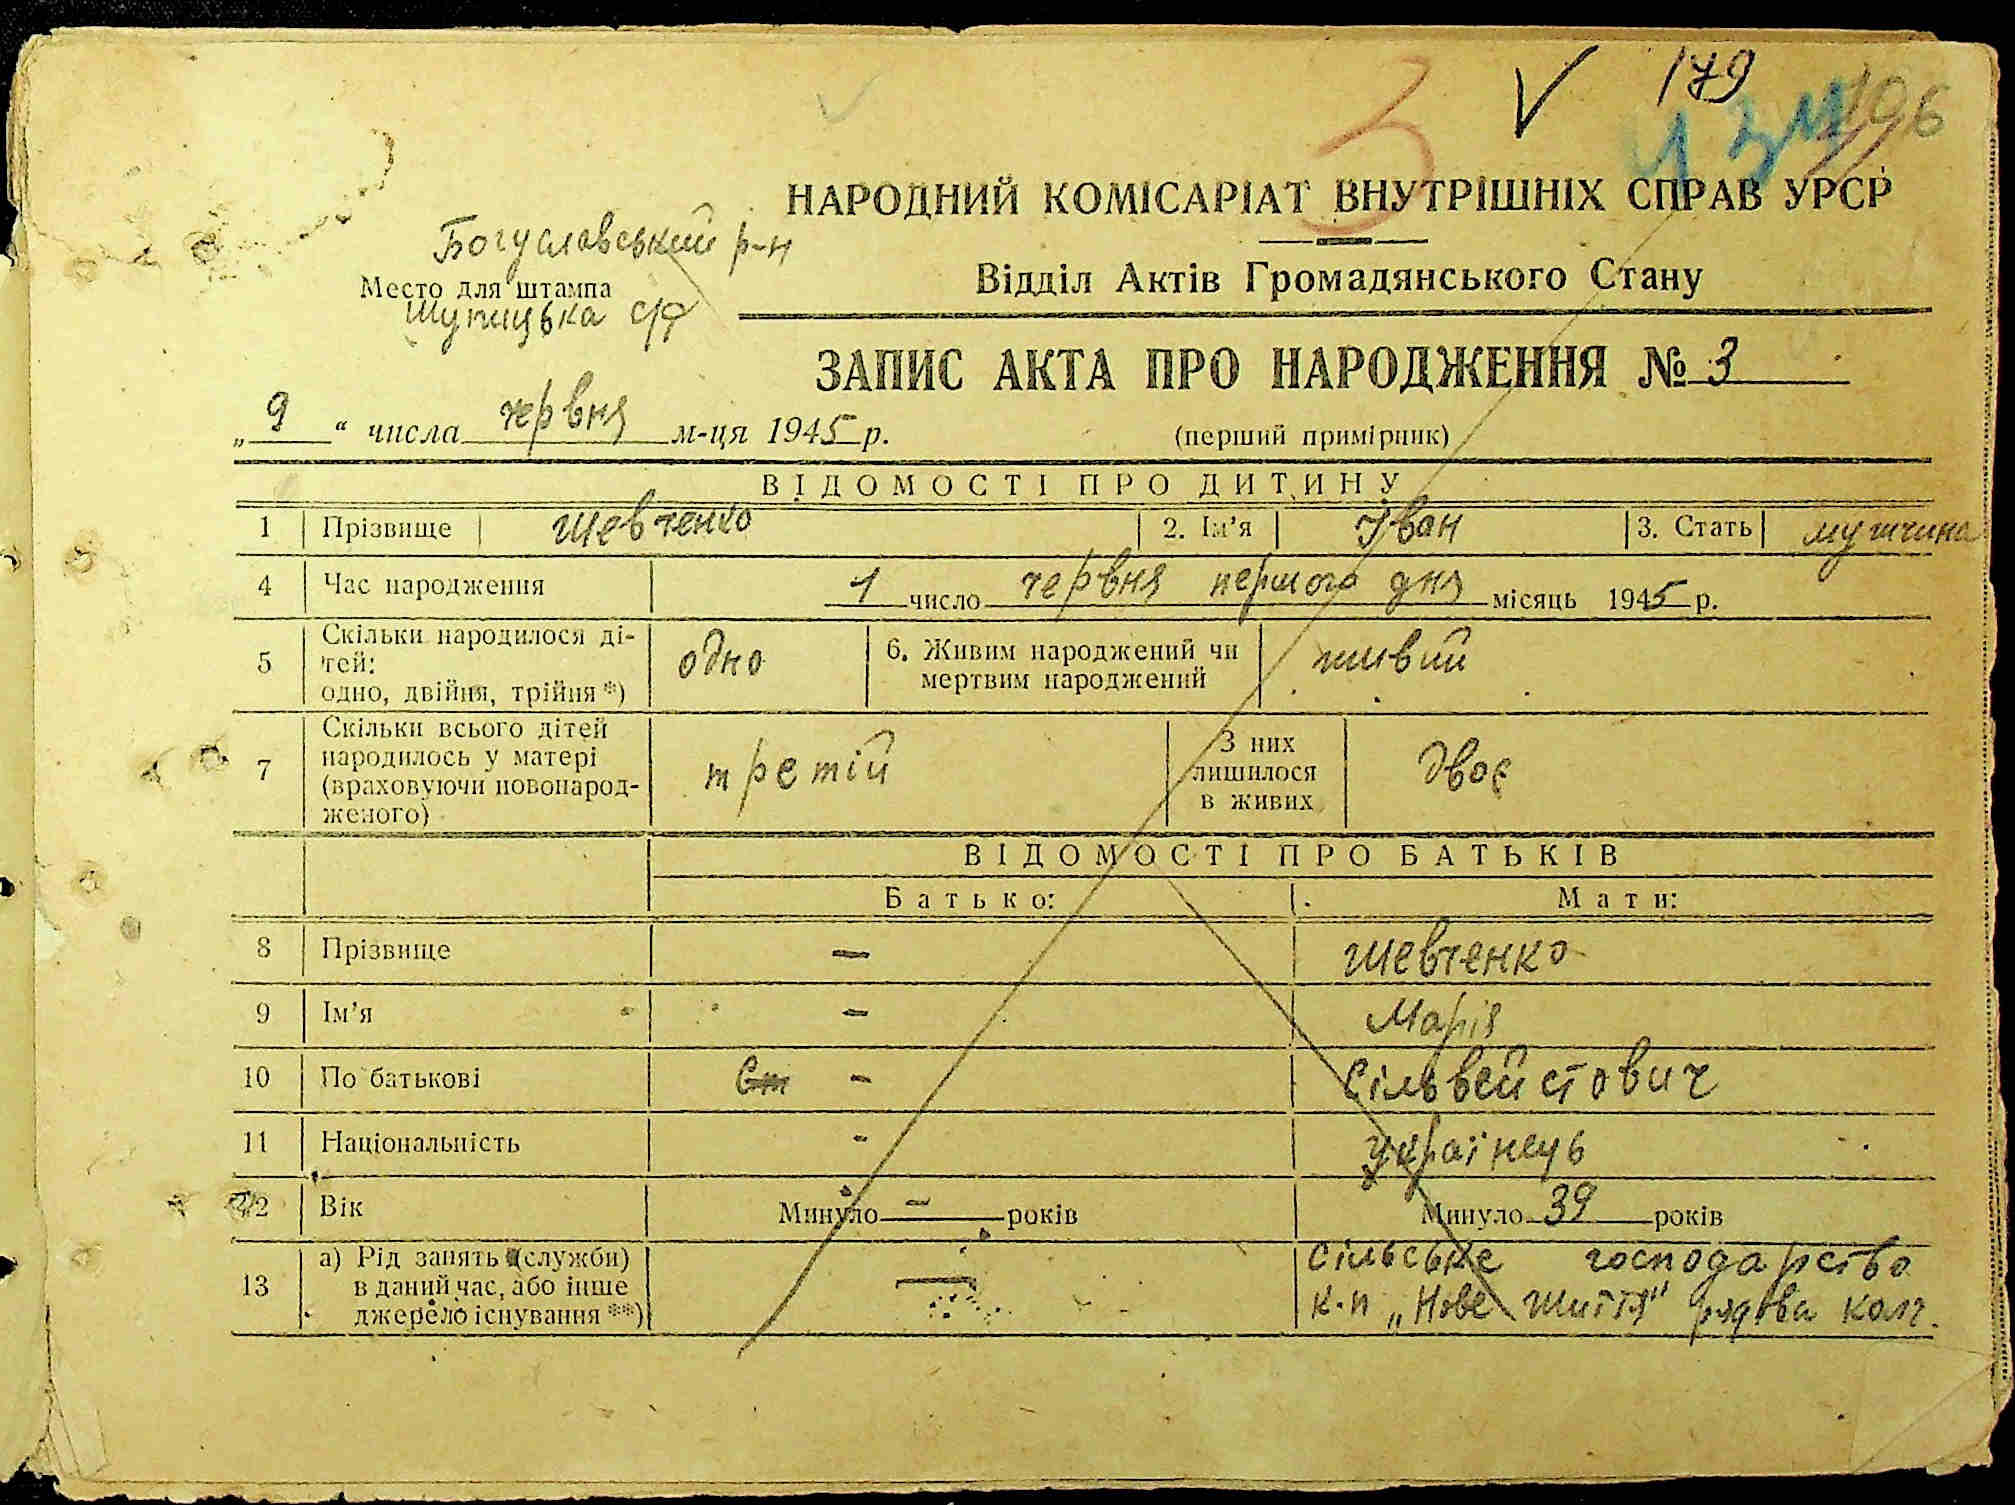 179
3
106
НАРОДНИЙ КОМІСАРІАТ ВНУТРІШНІХ СПРАВ УРСР
Богуславський р-н
Место для штампа
Шупицька с/р
Відділ Актів Громадянського Стану
ЗАПИС АКТА ПРО НАРОДЖЕННЯ № 3
„ 9 “ числа червня м-ця 1945 р.
(перший примірник)
ВІДОМОСТІ ПРО ДИТИНУ
1 Прізвище Шевченко 2. Ім'я Іван 3. Стать мужчина
4 Час народження 1 число червня першого дня місяць 1945 р.
5 Скільки народилося ді-
тей:
одно, двійня, трійня *) одно 6. Живим народжений чи
мертвим народжений живий
7 Скільки всього дітей
народилось у матері
(враховуючи новонарод-
женого) третій З них
лишилося
в живих двоє
ВІДОМОСТІ ПРО БАТЬКІВ
Батько: Мати:
8 Прізвище — Шевченко
9 Ім'я - Марія
10 По батькові Ст - Сільвейстович
11 Національність - українець
12 Вік Минуло — років Минуло 39 років
13 а) Рід занять (служби)
в даний час, або інше
джерело існування **) — Сільське господарство
к-п „Нове життя" рядова колг.